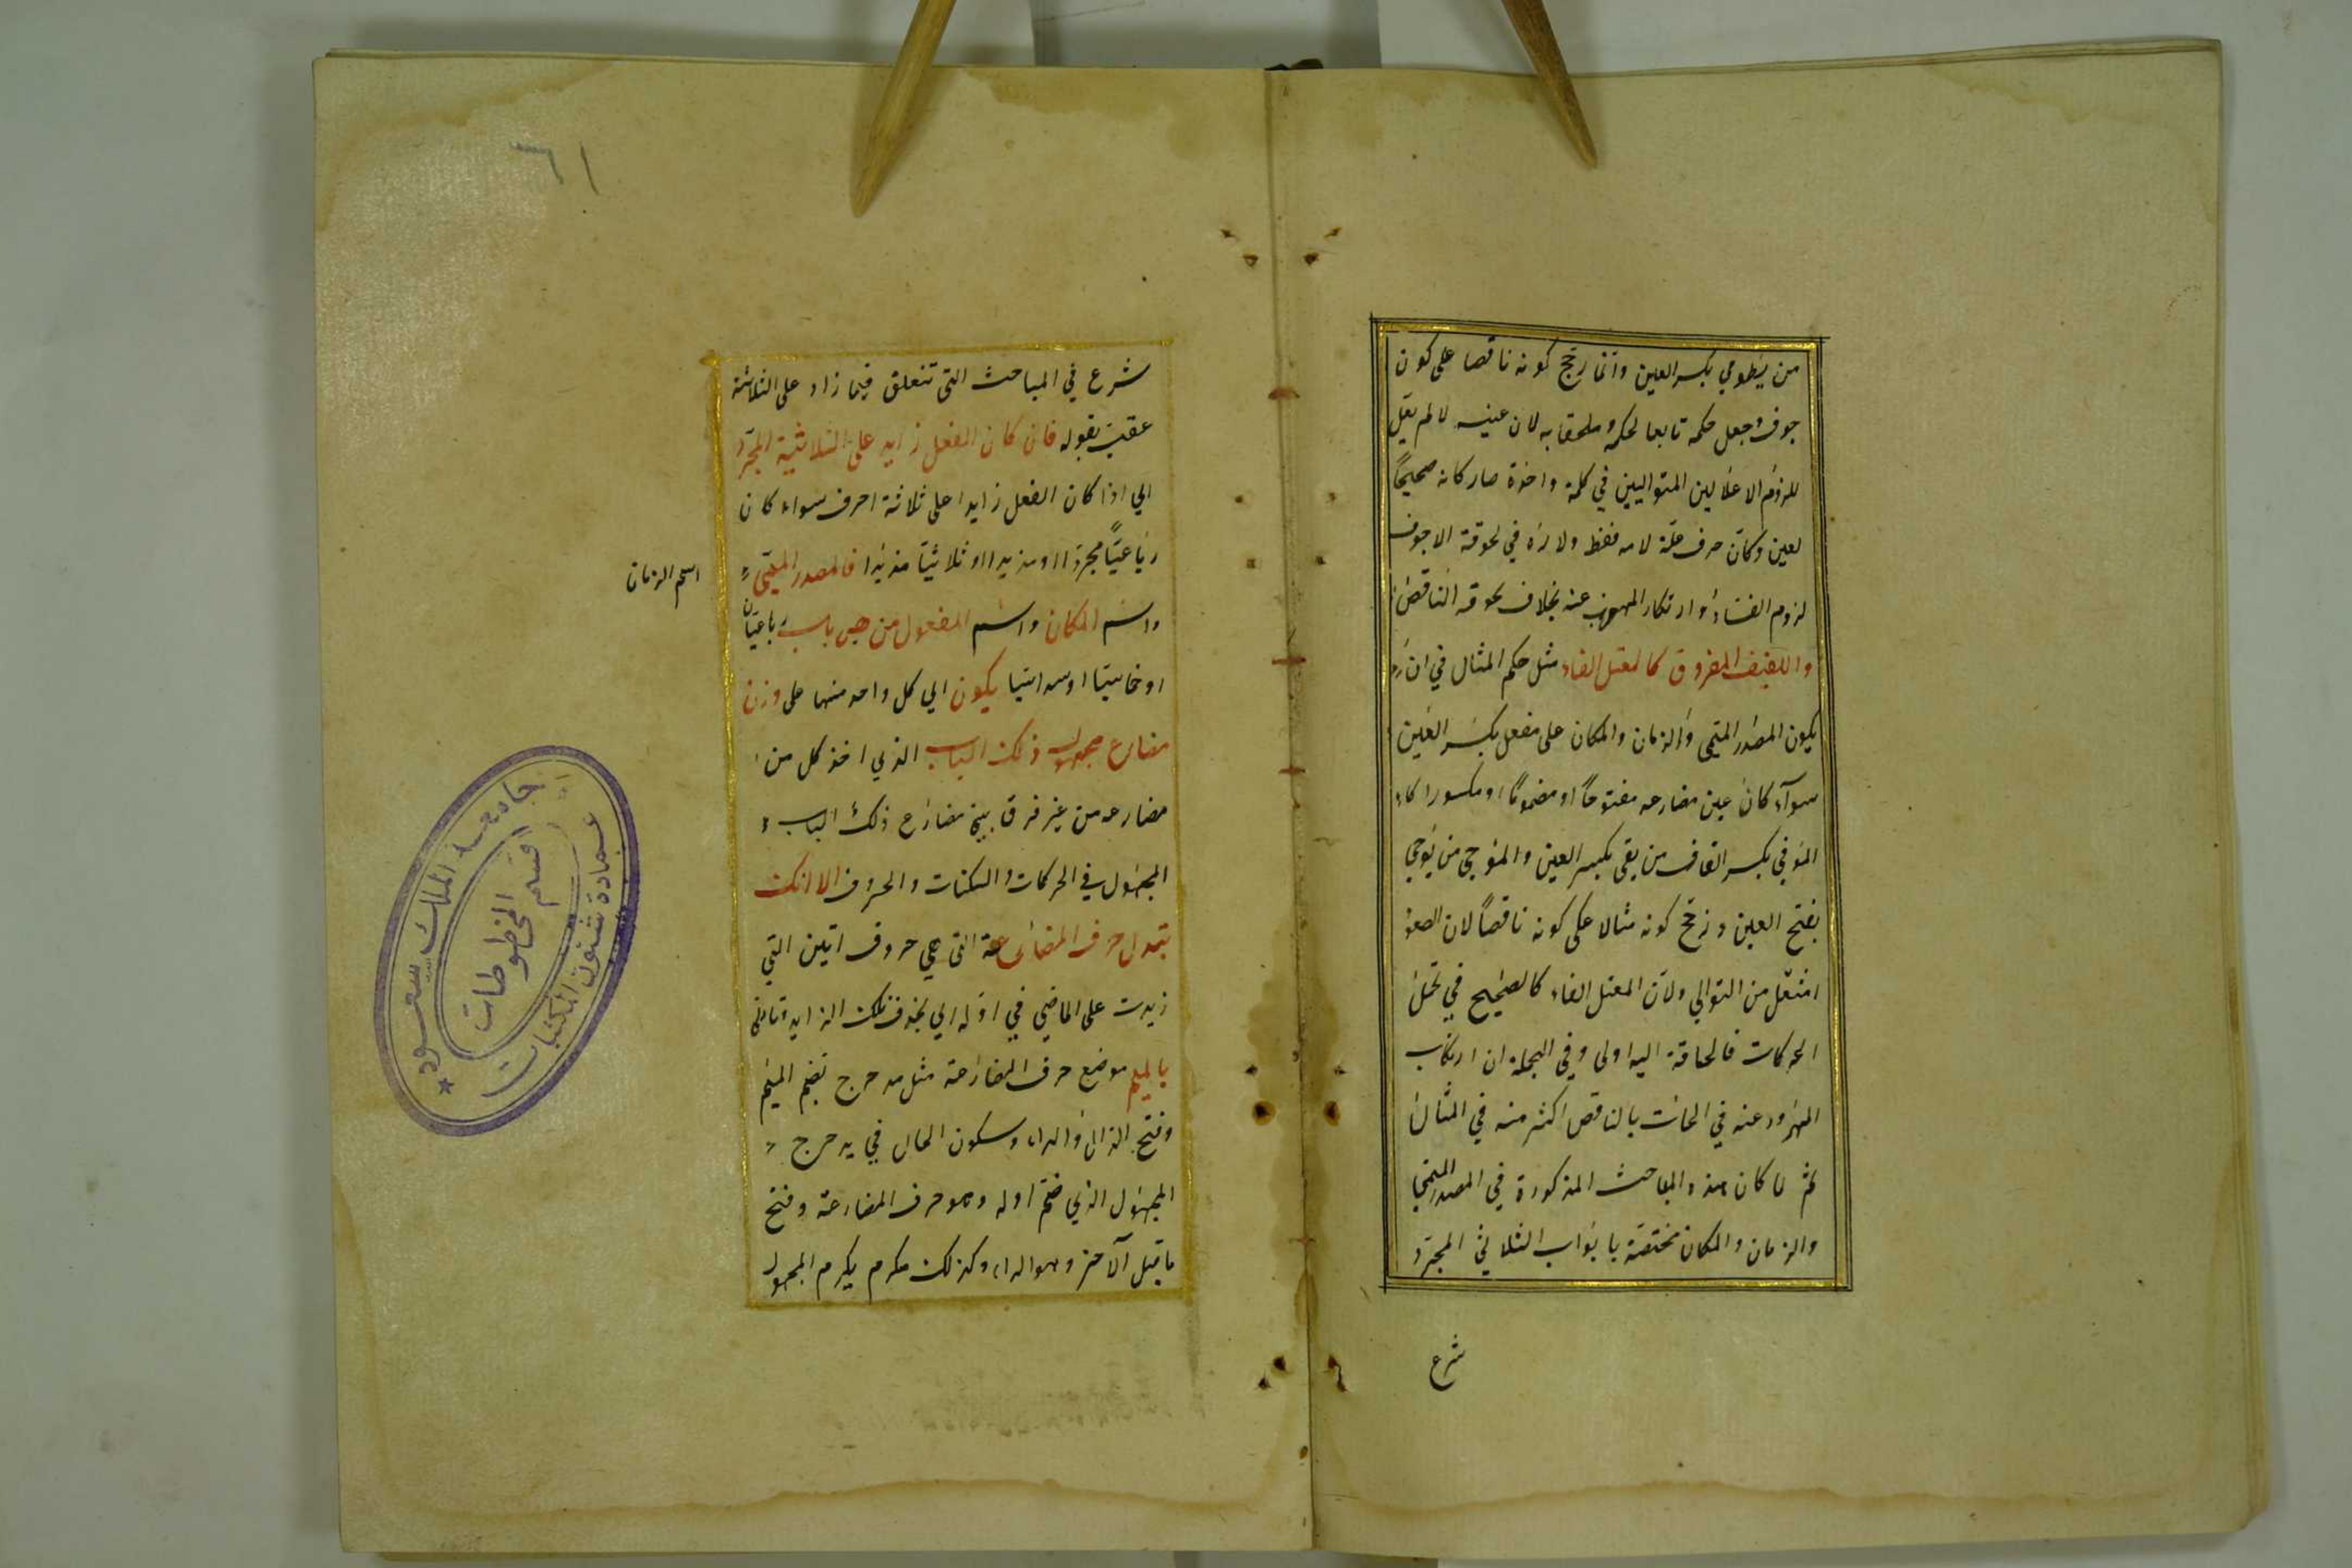 من يطوي بكسر العين وانما رجح كونه ناقصا على كون
جوف وجعل حكمه تابعا لحكمه وملحقا به لان عينه لا لم يقل
للزوم الاعلالين المتواليين في كلمة واحدة صار كانه صحيحا
لعين وكان حرف علة لامه فقط ولانه في لحوقه الاجوف
لزوم الفساد وارتكاب المهروب عنه بخلاف لحوقه الناقص
واللفيف المفروق كالمعتل الفاء مثل حكم المثال في ان
يكون المصدر الميمي والزمان والمكان على مفعل بكسر العين
سواء كان عين مضارعه مفتوحا او مضموما او مكسورا كا
الموقي بكسر القاف من يقي بكسر العين والموجي من يوجي
بفتح العين ورجح كونه مثالا على كونه ناقصا لان الصعود
اثقل من التوالي ولان المعتل الفاء كالصحيح في تحمل
الحركات فالحاقه اليه اولى وفي الجملة ان ارتكاب
المهرود عنه في الحاقه بالناقص اكثر منه في المثال
ثم لما كان هذه المباحث المذكورة في المصدر الميمي
والزمان والمكان مختصة بابواب الثلاثي المجرد
شرع
٦١
شرع في المباحث التي تتعلق فيما زاد على الثلاثة
عقيب بقوله فان كان الفعل زايد على الثلاثية المجرد
اي اذا كان الفعل زايدا على ثلاثة احرف سواء كان
رباعيا مجردا او مزيدا او ثلاثيا مزيدا فالمصدر الميمي
اسم الزمان
واسم المكان واسم المفعول من كل باب رباعيا كان
او خماسيا او سداسيا يكون اي كل واحد منها على وزن
مضارع مجهول ذلك الباب الذي اخذ كل من
مضارعه من غير فرق بين مضارع ذلك الباب
المجهول في الحركات والسكنات والحروف الا انك
تبدل حرف المضارعة التي هي حروف اتين التي
زيدت على الماضي في اوله اي بحذف تلك الزايد وتاتي
بالميم موضع حرف المضارعة مثل مدحرج بضم الميم
وفتح الدال والراء وسكون الحاء في يدحرج
المجهول الذي ضم اوله وهو حرف المضارعة وفتح
ما قبل الآخر وهو الراء وكذلك مكرم يكرم المجهول
جامعة الملك سعود
عمادة شئون المكتبات
قسم
المخطوطات